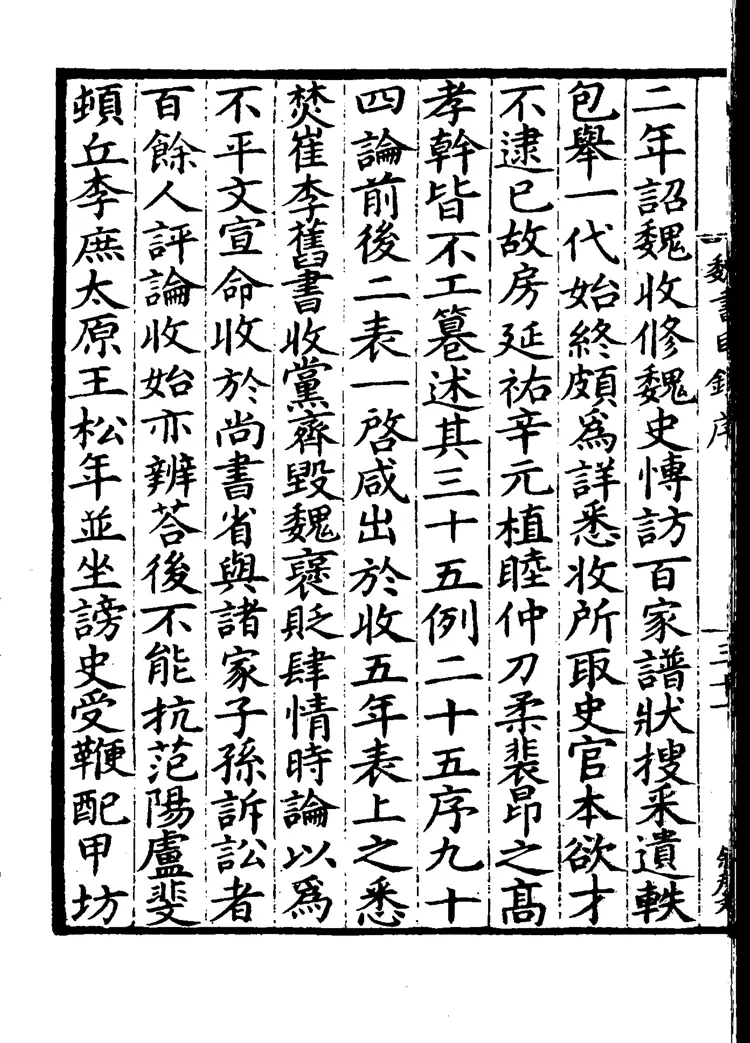 魏書目錄序
二年詔魏收修魏史愽訪百家譜狀搜釆遺軼
包舉一代始終頗爲詳悉收所取史官本欲才
不逮已故房延祐辛元植睦仲刀柔裴昂之髙
孝幹皆不工纂述其三十五例二十五序九十
四論前後二表一啓咸出於收五年表上之悉
焚崔李舊書收黨齊毀魏襃貶肆情時論以爲
不平文宣命收於尚書省與諸家子孫訴訟者
百餘人評論收始亦辨荅後不能抗范陽盧斐
頓丘李庶太原王松年並坐謗史受鞭配甲坊